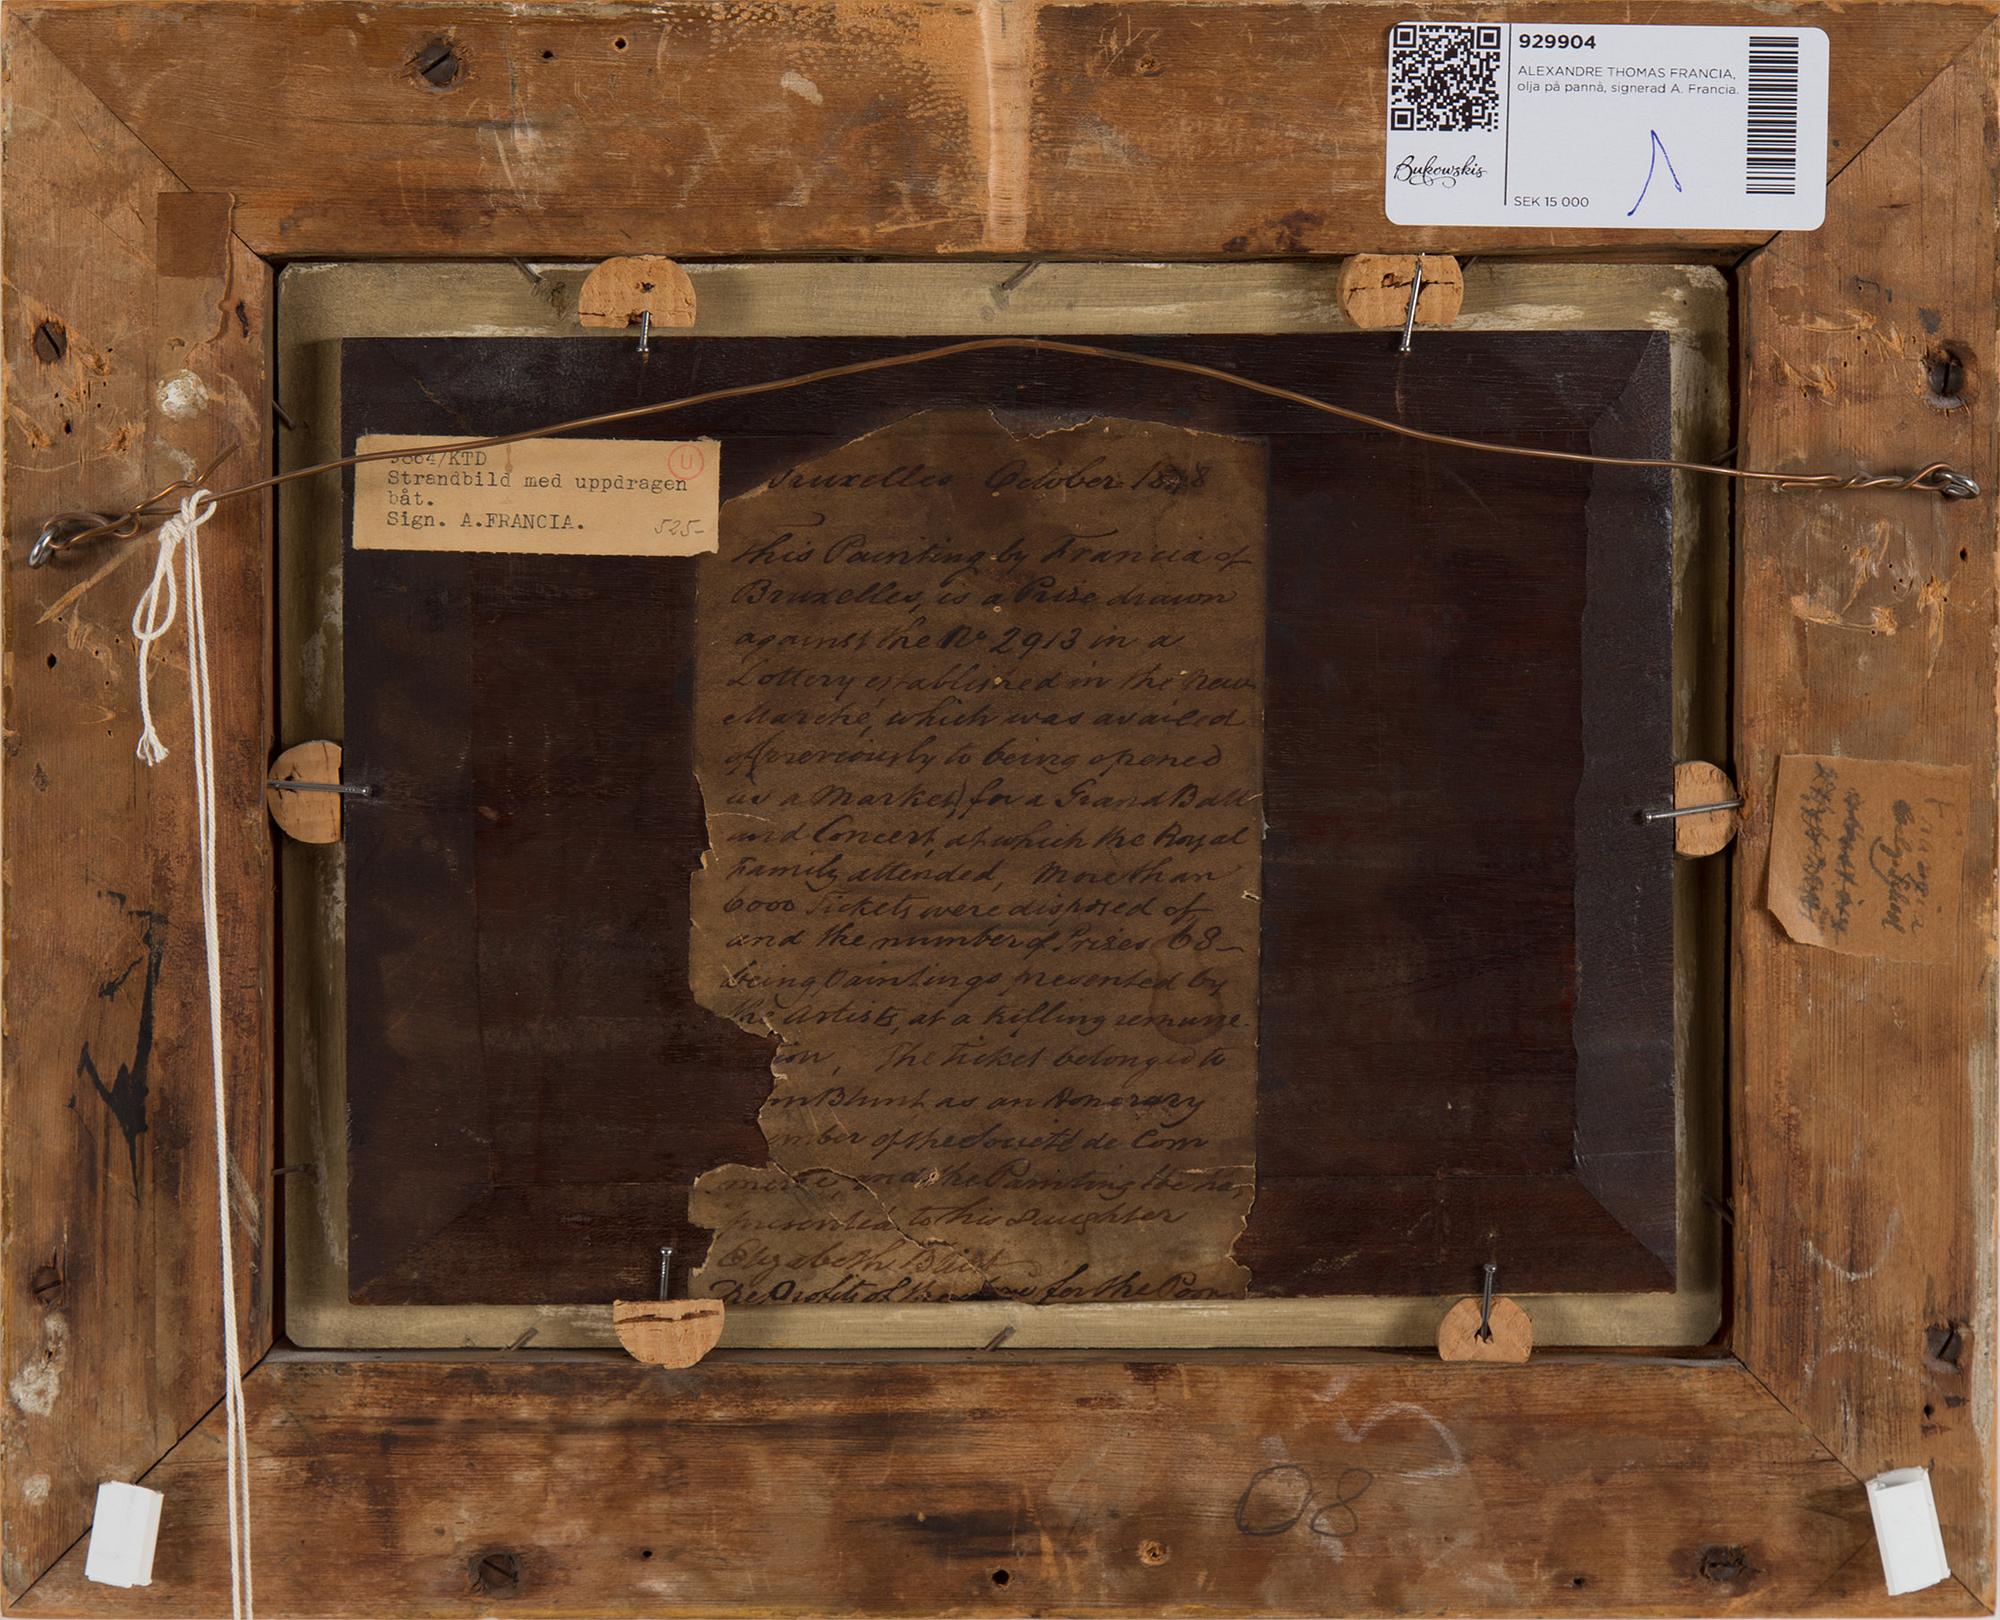 929904
ALEXANDRE THOMAS FRANCIA,
olja på pannå, signerad A. Francia.
Bukowskis
SEK 15 000
/KTD
U
Strandbild med uppdragen
båt.
Sign. A.FRANCIA.
525-
Bruxelles October 18 8
This Painting by Francia of
Bruxelles, is a Prize drawn
against the No 2913 in a
Lottery established in the New
Marché, which was availed
of (previously to being opened
as a Market) for a Grand Ball
and Concert, at which the Royal
Family attended, More than
6000 Tickets were disposed of
and the number of Prizes 68—
being Paintings presented by
the Artists, at a trifling remune-
tion, The Ticket belonged to
Blunt as an Honorary
mber of the Société de Com
merce, and the Painting he has
presented to his Daughter
Elizabeth Blunt
The Profits of the for the Poor
08